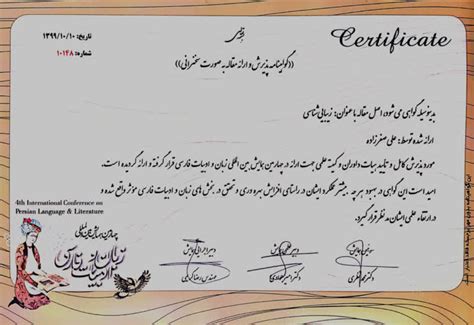 Certificate
تاریخ: ۱۳۹۹/۱۰/۱۰
شماره: ۱۰۱۴۸
((گواهینامه پذیرش و ارائه مقاله به صورت سخنرانی))
بدینوسیله گواهی می شود: اصل مقاله با عنوان: زیبایی شناسی
ارائه شده توسط: علی صفرزاده
مورد پذیرش کامل و تایید هیات داوران و کمیته علمی جهت ارائه در چهارمین همایش بین المللی زبان و ادبیات فارسی قرار گرفته و ارائه گردیده است.
امید است این گواهی در بهبود هر چه بیشتر عملکرد ایشان در راستای افزایش بهره وری و تحقق در بخش های زبان و ادبیات فارسی موثر واقع شده و
در ارتقاء علمی ایشان مد نظر قرار گیرد.
4th International Conference on
Persian Language & Literature
چهارمین همایش بین المللی
زبان و ادبیات فارسی